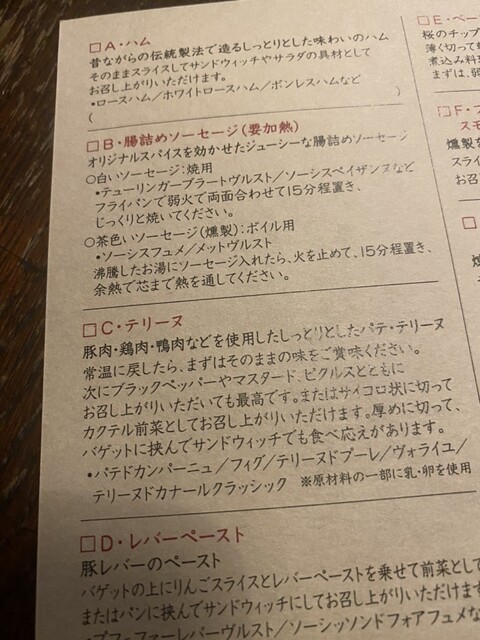 □A・ハム
昔ながらの伝統製法で造るしっとりとした味わいのハム
そのままスライスしてサンドウィッチやサラダの具材として
お召し上がりいただけます。
•ロースハム／ホワイトロースハム／ボンレスハムなど
( )
□B・腸詰めソーセージ(要加熱)
オリジナルスパイスを効かせたジューシーな腸詰めソーセージ
○白いソーセージ：焼用
•テューリンガーブラートヴルスト／ソーシスペイザンヌなど
フライパンで弱火で両面合わせて15分程置き、
じっくりと焼いてください。
○茶色いソーセージ(燻製)：ボイル用
•ソーシスフュメ／メットヴルスト
沸騰したお湯にソーセージ入れたら、火を止めて、15分程置き、
余熱で芯まで熱を通してください。
□C・テリーヌ
豚肉・鶏肉・鴨肉などを使用したしっとりとしたパテ・テリーヌ
常温に戻したら、まずはそのままの味をご賞味ください。
次にブラックペッパーやマスタード、ピクルスとともに
お召し上がりいただいても最高です。またはサイコロ状に切って
カクテル前菜としてお召し上がりいただけます。厚めに切って、
バゲットに挟んでサンドウィッチでも食べ応えがあります。
•パテドカンパーニュ／フィグ／テリーヌドプーレ／ヴォライユ／
テリーヌドカナールクラッシック ※原材料の一部に乳・卵を使用
□D・レバーペースト
豚レバーのペースト
バゲットの上にりんごスライスとレバーペーストを乗せて前菜として
またはパンに挟んでサンドウィッチにしてお召し上がりいただけます
ファーレバーヴルスト／ソーシッソンドフォアフュメな
□E・ベー
桜のチップ
薄く切って
煮込み料理
まずは、
□F・
スモ
燻製を
スライ
お召